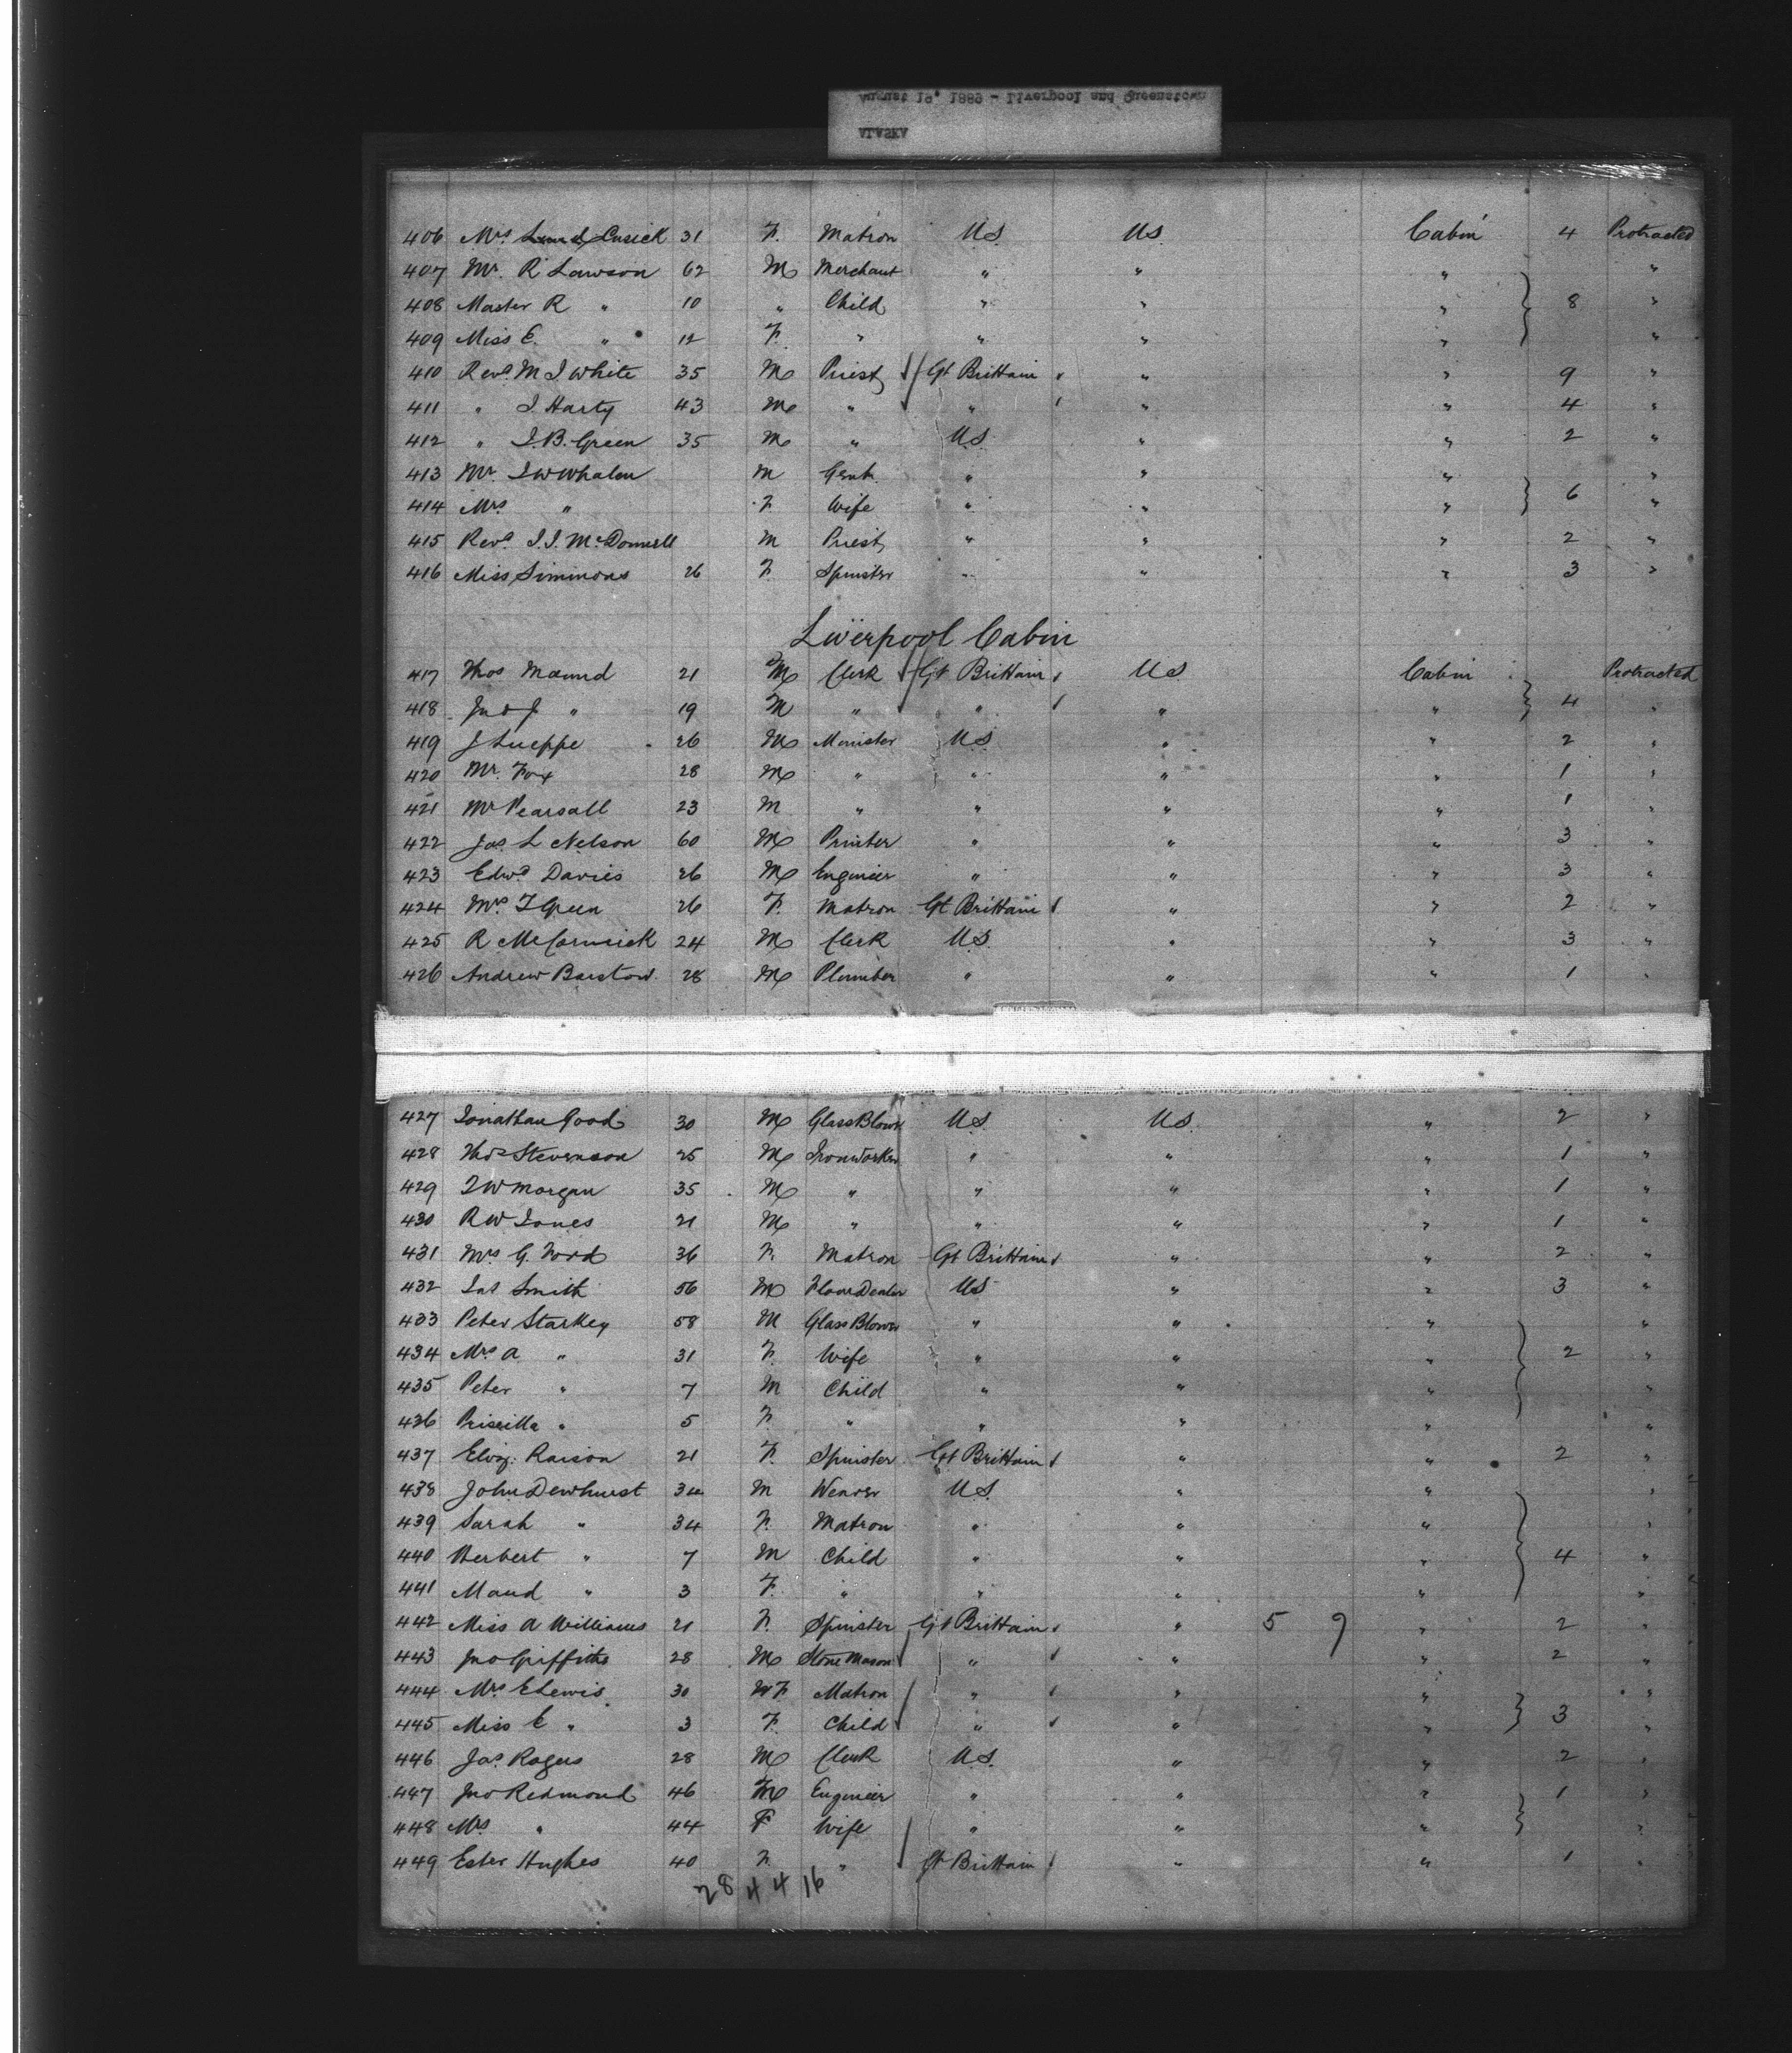 August 19, 1889 - Liverpool and Queenstown
ALASKA
406 Mrs Cusick 31 F. Matron U.S. U.S. Cabin 4 Protracted
407 Mr. R Lawson 62 M Merchant " " " "
408 Master R " 10 " Child " " " 8 "
409 Miss E. " 12 F. " " " " "
410 Revd. M J White 35 M Priest Gt Brittain " " 9 "
411 " J. Harty 43 M " " " " 4 "
412 " J.B. Green 35 M " U.S. " " 2 "
413 Mr. J W Whalen M Gent. " " " "
414 Mrs " F Wife " " " 6 "
415 Revd. J.J. McDonnell M Priest " " " 2 "
416 Miss Simmons 26 F. Spinster " " " 3 "
Liverpool Cabin
417 Thos Maund 21 M Clerk Gt Brittain U.S. Cabin Protracted
418 Jno J " 19 M " " " " 4 "
419 J Lueppe 26 M Minister U.S. " " 2 "
420 Mr. Fox 28 M " " " " 1 "
421 Mr Pearsall 23 M " " " " 1 "
422 Jas. L Nelson 60 M Printer " " " 3 "
423 Edwd Davies 26 M Engineer " " " 3 "
424 Mrs. T Green 26 F. Matron Gt Brittain " " 2 "
425 R McCormick 24 M Clerk U.S. " " 3 "
426 Andrew Barstow 28 M Plumber " " " 1 "
427 Jonathan Good 30 M Glass Blowr U.S. U.S. " 2 "
428 Thos Stevenson 25 M Ironworker " " " 1 "
429 T W Morgan 35 M " " " " 1 "
430 R W Jones 21 M " " " " 1 "
431 Mrs G. Ford 36 F. Matron Gt Brittain " " 2 "
432 Jas Smith 56 M Flour Dealer U.S. " " 3 "
433 Peter Starkey 58 M Glass Blower " " " "
434 Mrs A " 31 F. Wife " " " 2 "
435 Peter " 7 M Child " " " "
436 Priscilla " 5 F. " " " " "
437 Eliz. Raison 21 F. Spinster Gt Brittain " " 2 "
438 John Dewhurst 34 M Weaver U.S. " " "
439 Sarah " 34 F. Matron " " " "
440 Herbert " 7 M Child " " " 4 "
441 Maud " 3 F. " " " " "
442 Miss A Williams 21 F. Spinster Gt Brittain " 5 9 " 2 "
443 Jno Griffiths 28 M Stone Mason " " " 2 "
444 Mrs E Lewis 30 F Matron " " " "
445 Miss E " 3 F. Child " " " 3 "
446 Jas. Rogers 28 M Clerk U.S. " " 2 "
447 Jno Redmond 46 M Engineer " " " 1 "
448 Mrs " 44 F Wife " " " "
449 Ester Hughes 40 F. " Gt Brittain " " 1 "
28 4 4 16